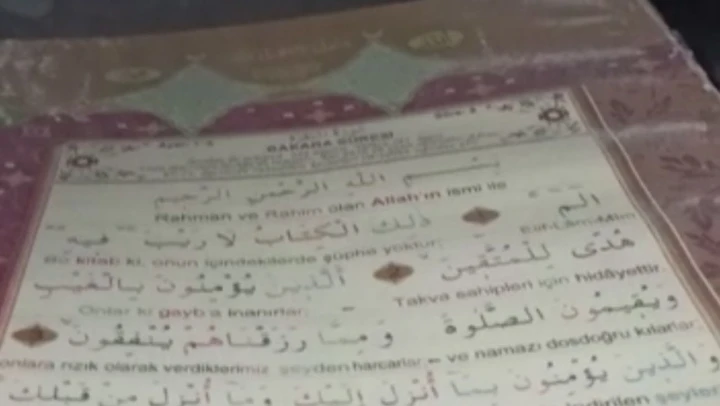 BAKARA SURESİ
بِسْــــمِ اللهِ الرَّحْمٰنِ الرَّحِيمِ
Rahman ve Rahim olan Allah'ın ismi ile
الٓمٓ ذٰلِكَ الْكِتَابُ لَا رَيْبَ فِيهِ
Elif-Lâm-Mîm Bu kitab ki, onun içindekilerde şüphe yoktur;
هُدًى لِلْمُتَّقِينَ الَّذِينَ يُؤْمِنُونَ بِالْغَيْبِ
Takva sahipleri için hidâyettir. Onlar ki gayb'a inanırlar,
وَيُقِيمُونَ الصَّلٰوةَ وَمِمَّا رَزَقْنَاهُمْ يُنْفِقُونَ
ve namazı dosdoğru kılarlar, onlara rızık olarak verdiklerimiz şeyden harcarlar
وَالَّذِينَ يُؤْمِنُونَ بِمَا أُنْزِلَ إِلَيْكَ وَمَا أُنْزِلَ مِنْ قَبْلِكَ
indirilen şeylere